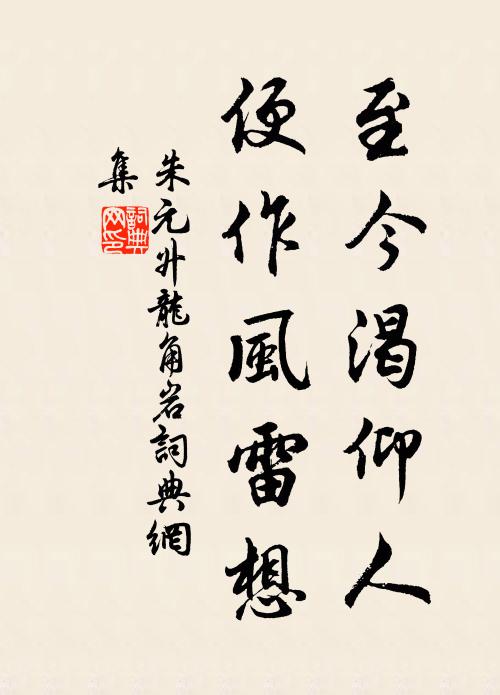 至今渴仰人
便作風雷想
朱元升龍角岩詞典網
集
詞典
网印